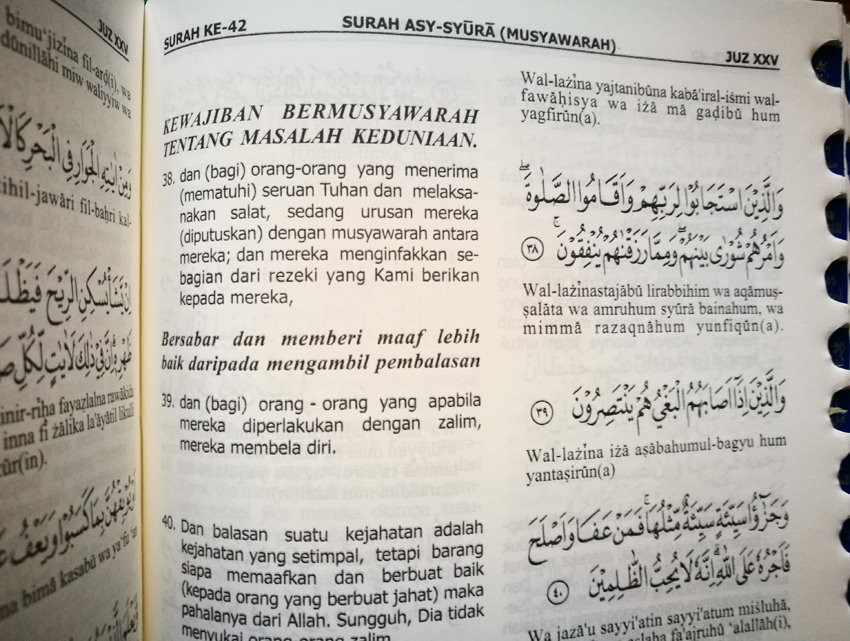 JUZ XXV
bimu‘jizīna fil-ard(i), wa
dūnillāhi miw waliyyiw wa
وَمِنْ اٰيٰتِهِ الْجَوَارِ فِى الْبَحْرِ
tihil-jawāri fil-baḥri kal-
اِنْ يَّشَأْ يُسْكِنِ الرِّيْحَ فَيَظْلَلْ
ظَهْرِهٖۗ اِنَّ فِيْ ذٰلِكَ لَاٰيٰتٍ لِّكُلِّ
inir-rīḥa fayaẓlalna rawākida
inna fī żālika la'āyātil likulli
ūr(in).
بِمَا كَسَبُوْا وَيَعْفُ
na bimā kasabū wa ya‘fu ‘an
SURAH KE-42
SURAH ASY-SYŪRĀ (MUSYAWARAH)
JUZ XXV
KEWAJIBAN BERMUSYAWARAH
TENTANG MASALAH KEDUNIAAN.
38. dan (bagi) orang-orang yang menerima
(mematuhi) seruan Tuhan dan melaksa-
nakan salat, sedang urusan mereka
(diputuskan) dengan musyawarah antara
mereka; dan mereka menginfakkan se-
bagian dari rezeki yang Kami berikan
kepada mereka,
Bersabar dan memberi maaf lebih
baik daripada mengambil pembalasan
39. dan (bagi) orang - orang yang apabila
mereka diperlakukan dengan zalim,
mereka membela diri.
40. Dan balasan suatu kejahatan adalah
kejahatan yang setimpal, tetapi barang
siapa memaafkan dan berbuat baik
(kepada orang yang berbuat jahat) maka
pahalanya dari Allah. Sungguh, Dia tidak
menyukai orang-orang zalim.
Wal-lażīna yajtanibūna kabā'iral-iśmi wal-
fawāḥisya wa iżā mā gaḍibū hum
yagfirūn(a).
وَالَّذِيْنَ اسْتَجَابُوْا لِرَبِّهِمْ وَاَقَامُوا الصَّلٰوةَۖ
وَاَمْرُهُمْ شُوْرٰى بَيْنَهُمْۖ وَمِمَّا رَزَقْنٰهُمْ يُنْفِقُوْنَ ۚ ٣٨
Wal-lażīnastajābū lirabbihim wa aqāmuṣ-
ṣalāta wa amruhum syūrā bainahum, wa
mimmā razaqnāhum yunfiqūn(a).
وَالَّذِيْنَ اِذَآ اَصَابَهُمُ الْبَغْيُ هُمْ يَنْتَصِرُوْنَ ٣٩
Wal-lażīna iżā aṣābahumul-bagyu hum
yantaṣirūn(a)
وَجَزٰۤؤُا سَيِّئَةٍ سَيِّئَةٌ مِّثْلُهَاۚ فَمَنْ عَفَا وَاَصْلَحَ
فَاَجْرُهٗ عَلَى اللّٰهِۗ اِنَّهٗ لَا يُحِبُّ الظّٰلِمِيْنَ ٤٠
Wa jazā'u sayyi'atin sayyi'atum miśluhā,
fa'ajruhū ‘alallāh(i),